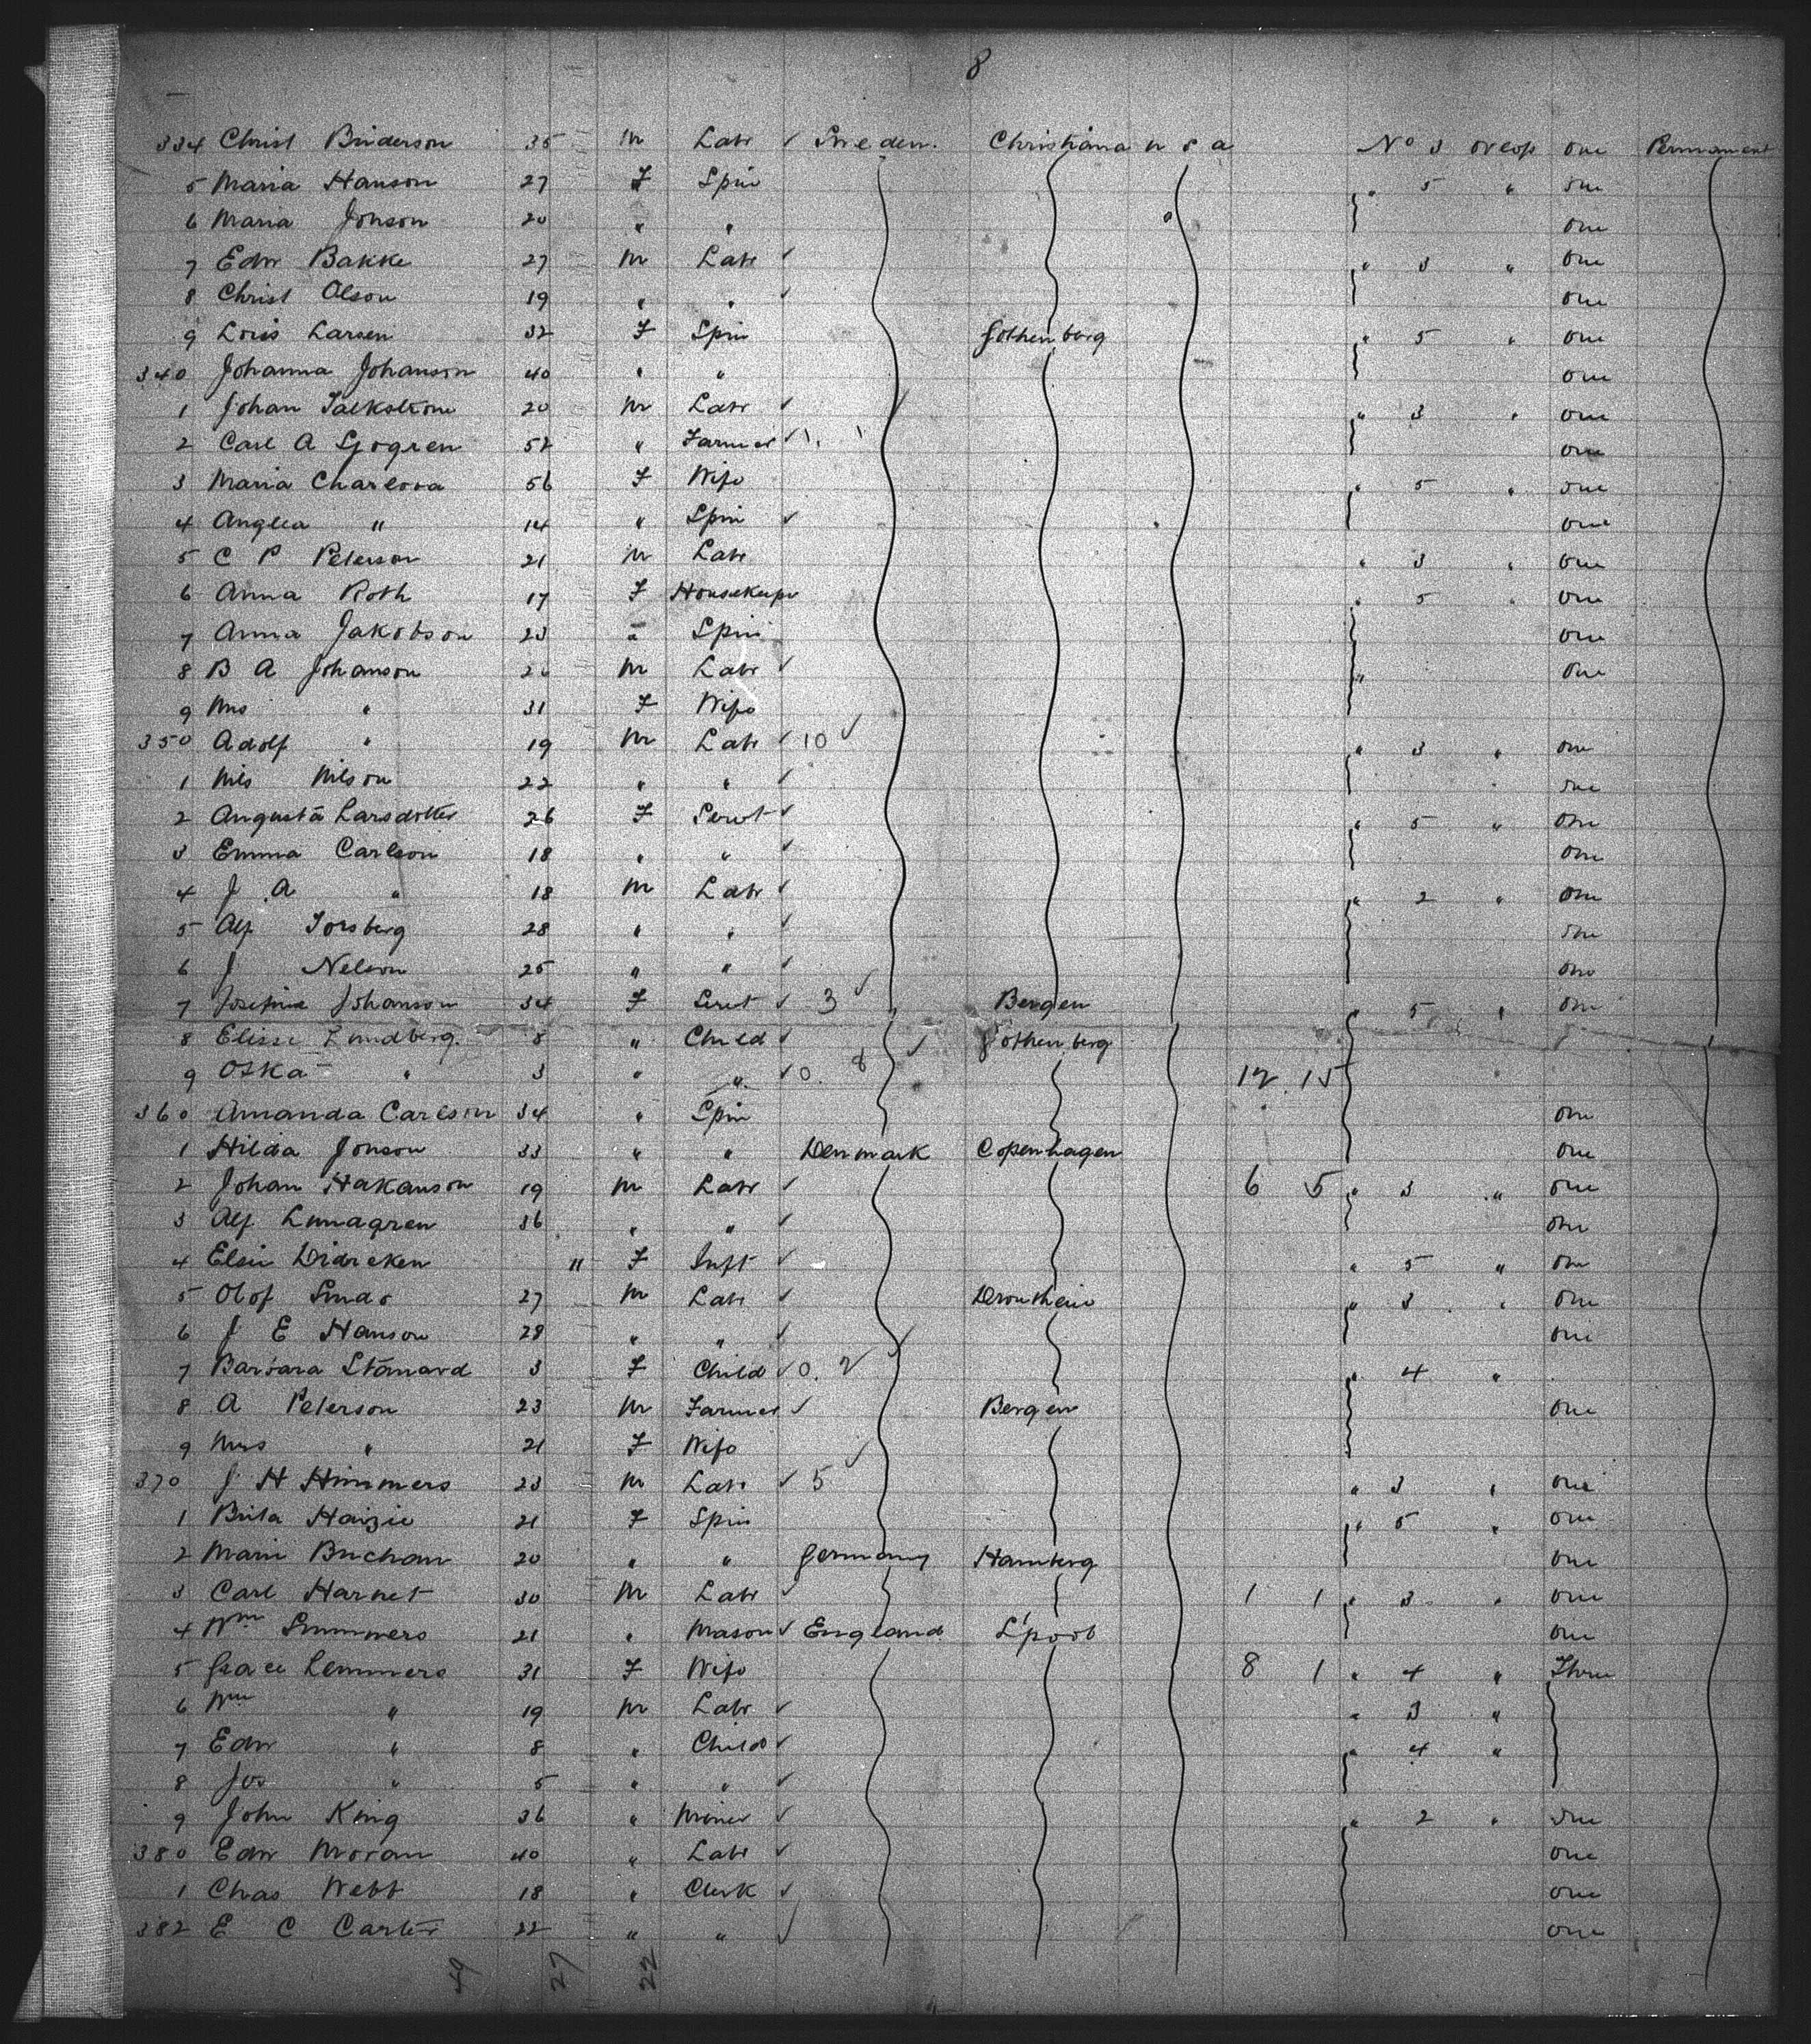 8
334 Christ Binderson 35 M Labr ✓ Sweden. Christiana U S A No 3 Steer one Permanent
5 Maria Hanson 27 F Spin " 5 " one
6 Maria Jonson 20 " " one
7 Edw Bakke 27 M Labr ✓ " 3 " one
8 Christ Olson 19 " " ✓ one
9 Loris Larsen 32 F Spin Gothenberg " 5 " one
340 Johanna Johanson 40 " " one
1 Johan Falkstrom 20 M Labr ✓ " 3 " one
2 Carl A Sjogren 52 " Farmer ✓ one
3 Maria Charlova 56 F Wife " 5 " one
4 Anglea " 14 " Spin ✓ one
5 C P Peterson 21 M Labr " 3 " one
6 Anna Roth 17 F Housekeepr " 5 " one
7 Anna Jakobson 23 " Spin one
8 B A Johanson 26 M Labr ✓ " one
9 Mrs " 31 F Wife
350 Adolf " 19 M Labr ✓ 10 ✓ " 3 " one
1 Nils Nilson 22 " " ✓ one
2 Augusta Larsdotter 26 F Servt ✓ " 5 " one
3 Emma Carlson 18 " " ✓ one
4 J A " 18 M Labr ✓ " 2 " one
5 Alf Forsberg 28 " " ✓ one
6 J Nelson 25 " " ✓ one
7 Josefine Johanson 34 F Servt ✓ 3 ✓ Bergen " 5 " one
8 Elisse Lundberg 8 " Child ✓ ✓ Gothenberg
9 Oska " 3 " " ✓ 0. 8 12 15
360 Amanda Carlson 34 " Spin one
1 Hilda Jonson 33 " " Denmark Copenhagen one
2 Johan Hakanson 19 M Labr ✓ 6 5 " 3 " one
3 Alf Lundgren 36 " " ✓ one
4 Elsie Didricken 11 F Inft ✓ " 5 " one
5 Olof Sundo 27 M Labr ✓ Drontheim " 3 " one
6 J E Hanson 28 " " ✓ one
7 Barbara Stanard 3 F Child ✓ 0. 2 ✓ " 4 "
8 A Peterson 23 M Farmer ✓ Bergen one
9 Mrs " 21 F Wife
370 J H Himmers 23 M Labr ✓ 5 ✓ " 3 " one
1 Brita Haizie 21 F Spin " 5 " one
2 Marie Buchaw 20 " " Germany Hamberg one
3 Carl Harnet 30 M Labr ✓ 1 1 " 3 " one
4 Wm Summers 21 " Mason ✓ England L'pool one
5 Grace Lemmers 31 F Wife 8 1 " 4 " Three
6 Wm " 19 M Labr ✓ " 3 "
7 Edw " 8 " Child ✓ " 4 "
8 Jos " 5 " " ✓
9 John King 36 " Miner ✓ " 2 " one
380 Edw Moran 40 " Labr ✓ one
1 Chas Webb 18 " Clerk ✓ one
382 E C Carter 22 " " ✓ one
49 27 22